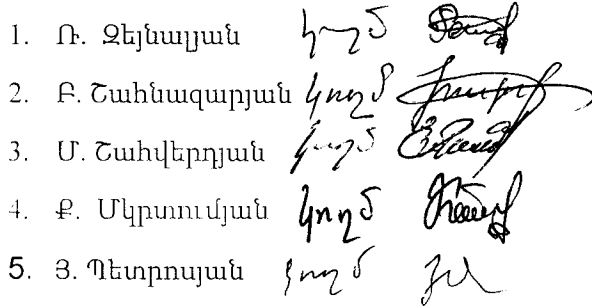 1. Ռ. Զեյնալյան կողմ
2. Բ. Շահնազարյան կողմ
3. Մ. Շահվերդյան կողմ
4. Ք. Մկրտումյան կողմ
5. Յ. Պետրոսյան կողմ